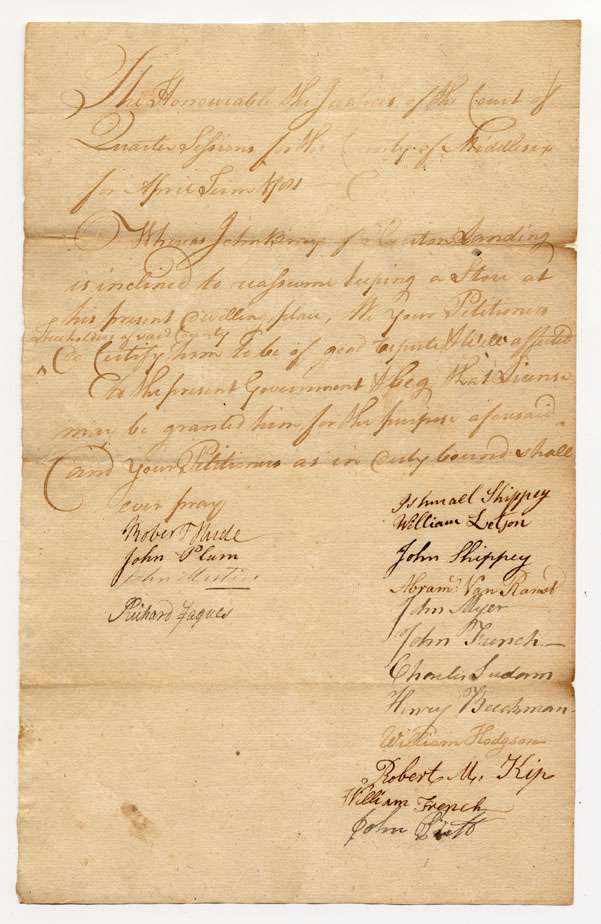 The Honourable the Justices of the Court of
Quarter Sessions for the County of Middlesex
for April Term
Whereas John of Landing
is inclined to reassume keeping a Store at
his present dwelling place, We your Petitioners
freeholders of said County
Do Certify him to be of good repute & well affected
to the present Government & beg that License
may be granted him for the purpose aforesaid
and your Petitioners as in duty bound shall
ever pray
Ishmael Shippey
William Letson
Robert Hude
John Plum
John Shippey
John
Abram. Van Ranst
Richard Jaques
John Myer
John French
Charles Sudam
Henry Beekman
William Hodgson
Robert M. Kip
William French
John